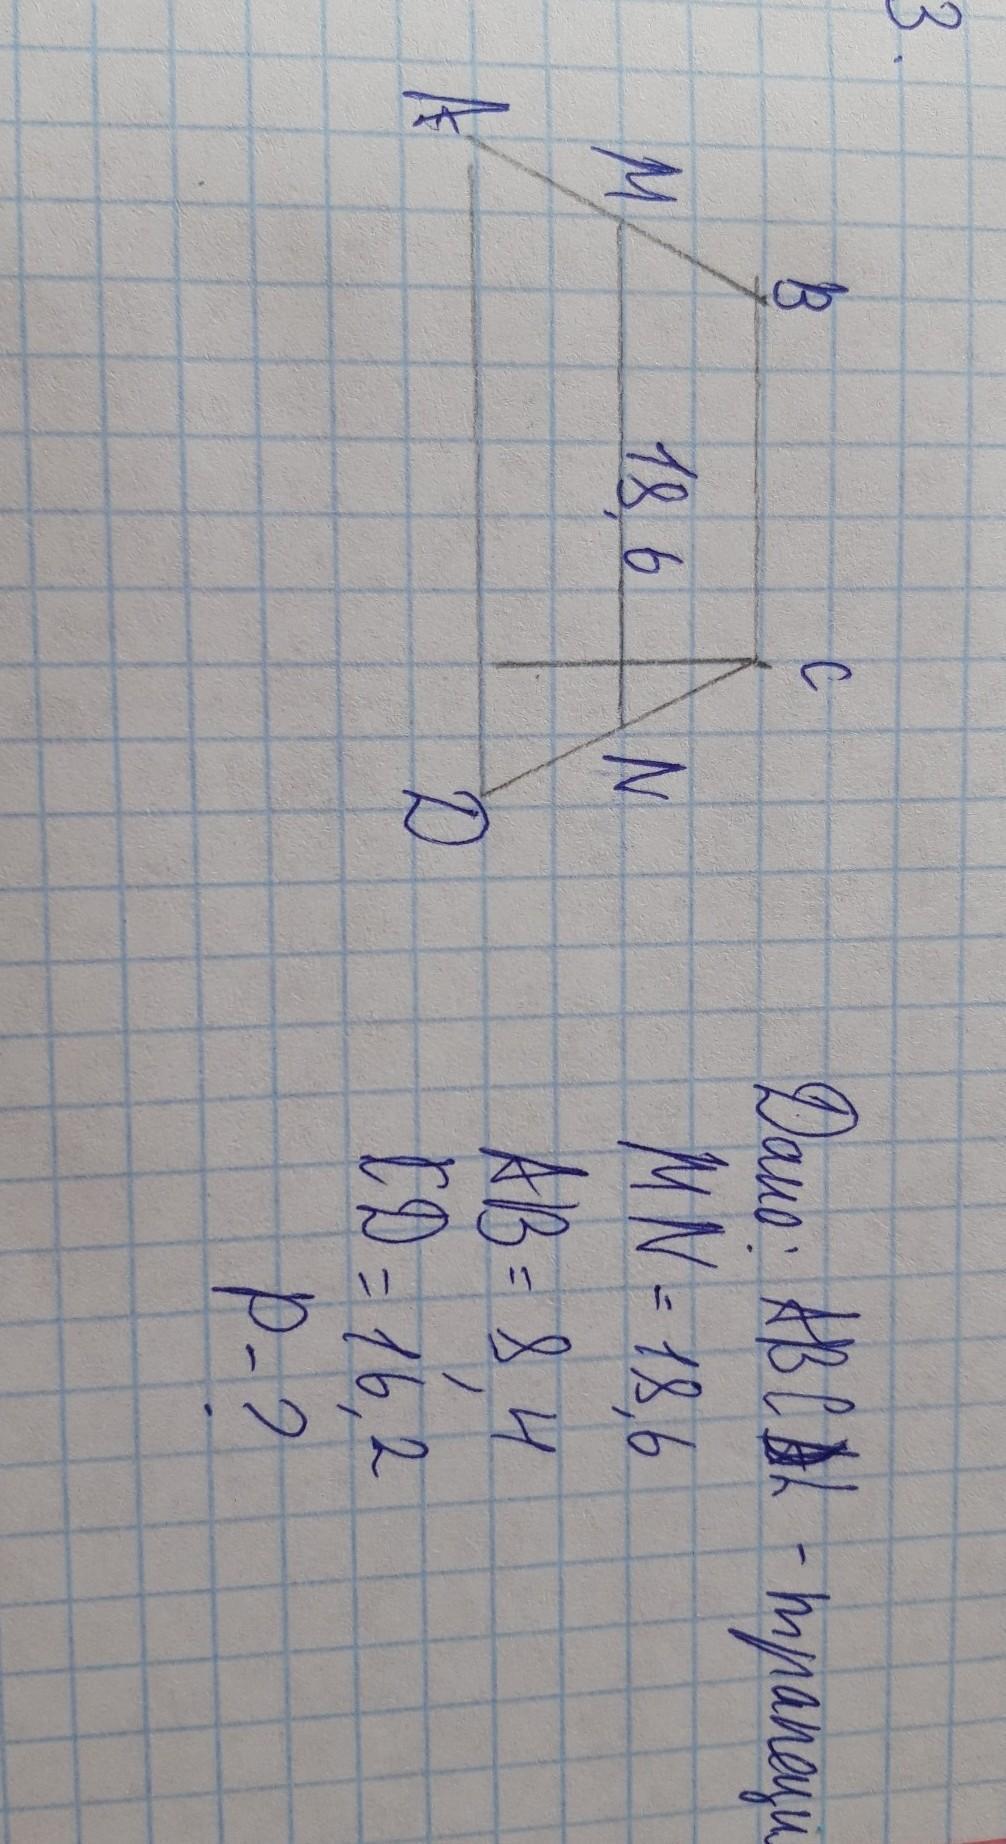 3.
B
C
M
18,6
N
A
D
Дано: ABCD - трапеци
MN = 18,6
AB = 8,4
CD = 16,2
P - ?